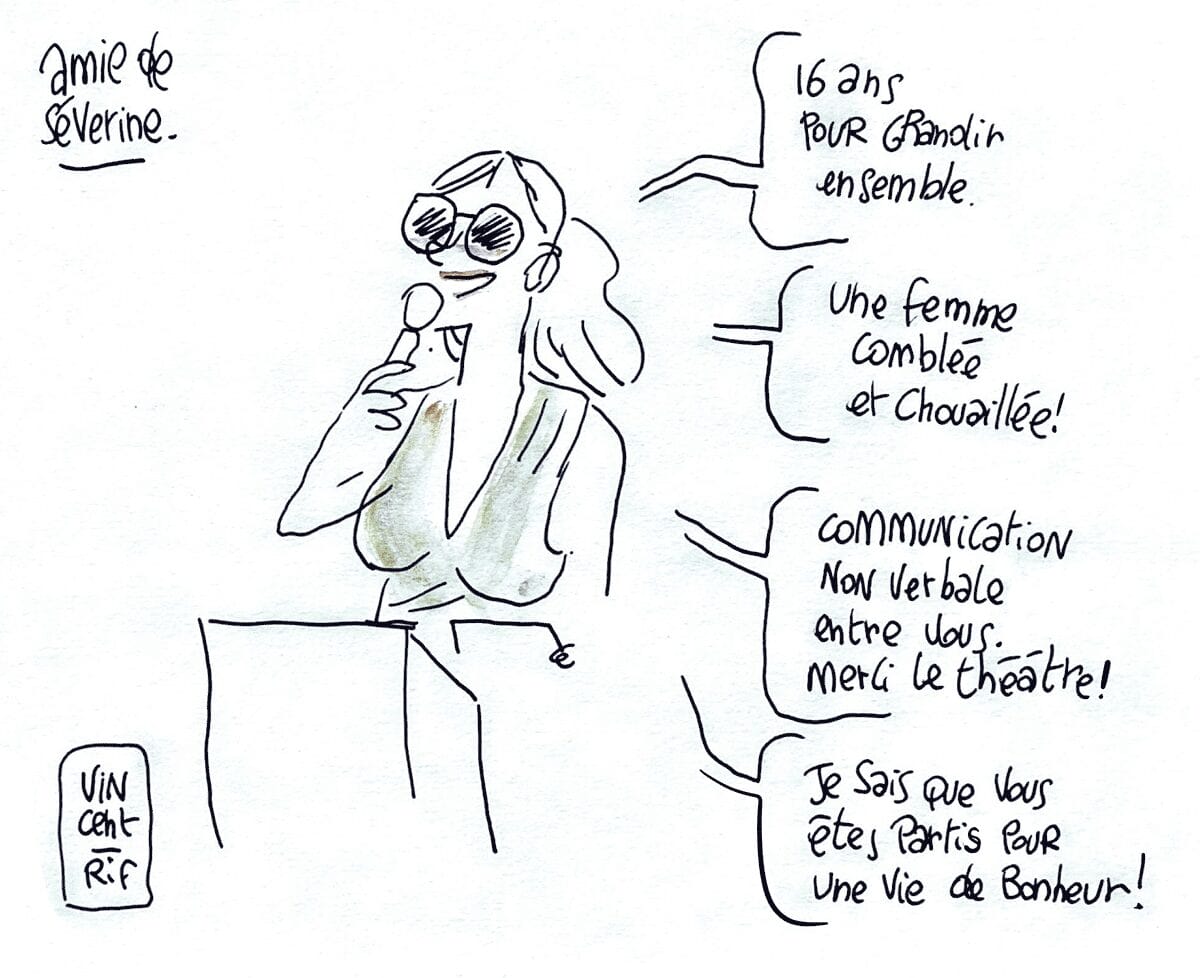 amie de
Séverine.
16 ans
POUR GRandir
ensemble.
Une femme
comblée
et Chouaillée!
COMMUNICATION
NON Verbale
entre vous.
Merci Le théâtre!
Je Sais que Vous
êtes Partis POUR
une Vie de Bonheur!
VIN
cent
Rif